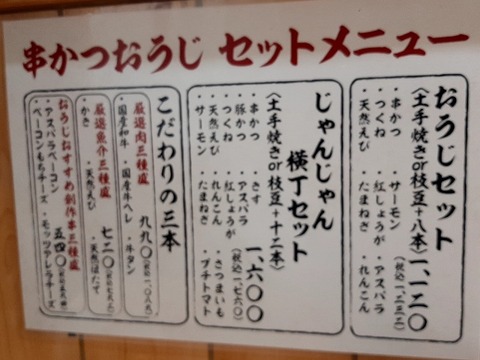 串かつおうじ セットメニュー
おうじセット
(土手焼きor枝豆+八本) 一、一二〇
(税込一、二三二)
・串かつ ・サーモン
・つくね ・アスパラ
・紅しょうが ・れんこん
・天然えび ・たまねぎ
じゃんじゃん
横丁セット
(土手焼きor枝豆+十二本)
一、六〇〇
(税込一、七六〇)
・串かつ ・きす
・豚かつ ・アスパラ
・つくね ・紅しょうが ・さつまいも
・天然えび ・れんこん ・プチトマト
・サーモン ・たまねぎ
こだわりの三本
厳選肉三種盛 九九〇
・国産和牛 ・国産牛ヘレ ・牛タン
厳選魚介三種盛 七二〇
・かき ・天然えび ・天然ほたて
おうじおすすめ創作串三種盛 五四〇
・アスパラベーコン
・ベーコンもちチーズ ・モッツアレラチーズ